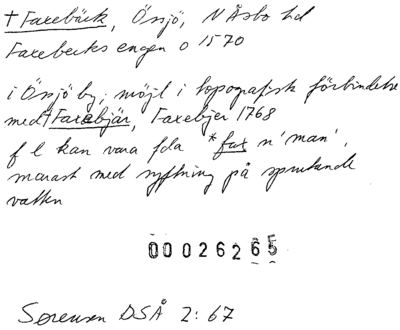 † Faxebäck, Össjö, N Åsbo hd
Faxebecks engen o 1570
i Össjö by; möjl i topografisk förbindelse
med † Faxebjär, Faxebjer 1768
f l kan vara fda *fax n 'man',
marast med syftning på sprutande
vatten
00026265
Sørensen DSÅ 2:67